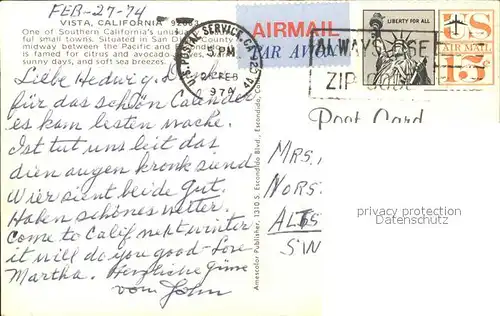 FEB-27-74
VISTA, CALIFORNIA 92083
One of Southern California's
ful small towns. Situated in San Diego County
midway between the Pacific and
is famed for citrus and avocados,
sunny days, and soft sea breezes.
U.S. POSTAL SERVICE, CA
PM
27 FEB
1974
AIRMAIL
PAR AVION
LIBERTY FOR ALL
US
AIR MAIL
15¢
ALWAYS USE
ZIP CODE
Post Card
Liebe Hedwig. Danke
für das schön Calender
es kam lesten woche.
Ist tut uns leit das
dien augen kronk siend
Wier sient beide gut.
Haben schönes wetter.
Come to Calif next winter
it will do you good - Love
Martha. Herzliche Grüse
vom John
Amescolor Publisher, 1310 S. Escondido Blvd., Escondido,
Mrs.,
Nors.
ALTS
SW
privacy protection
Datenschutz